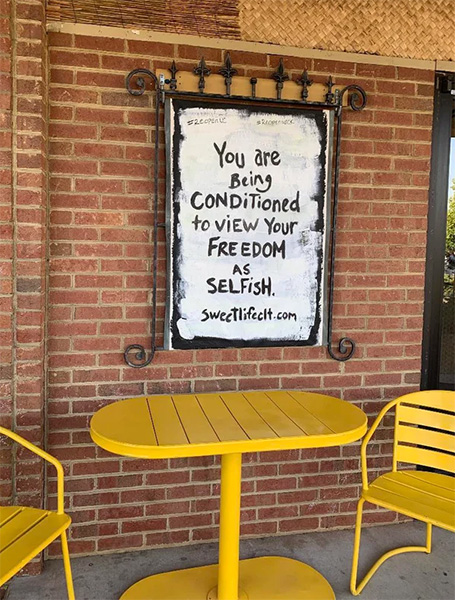 You are
Being
CONDiTiONED
to ViEW YOUR
FREEDOM
AS
SELFiSH.
SweetLifeclt.com